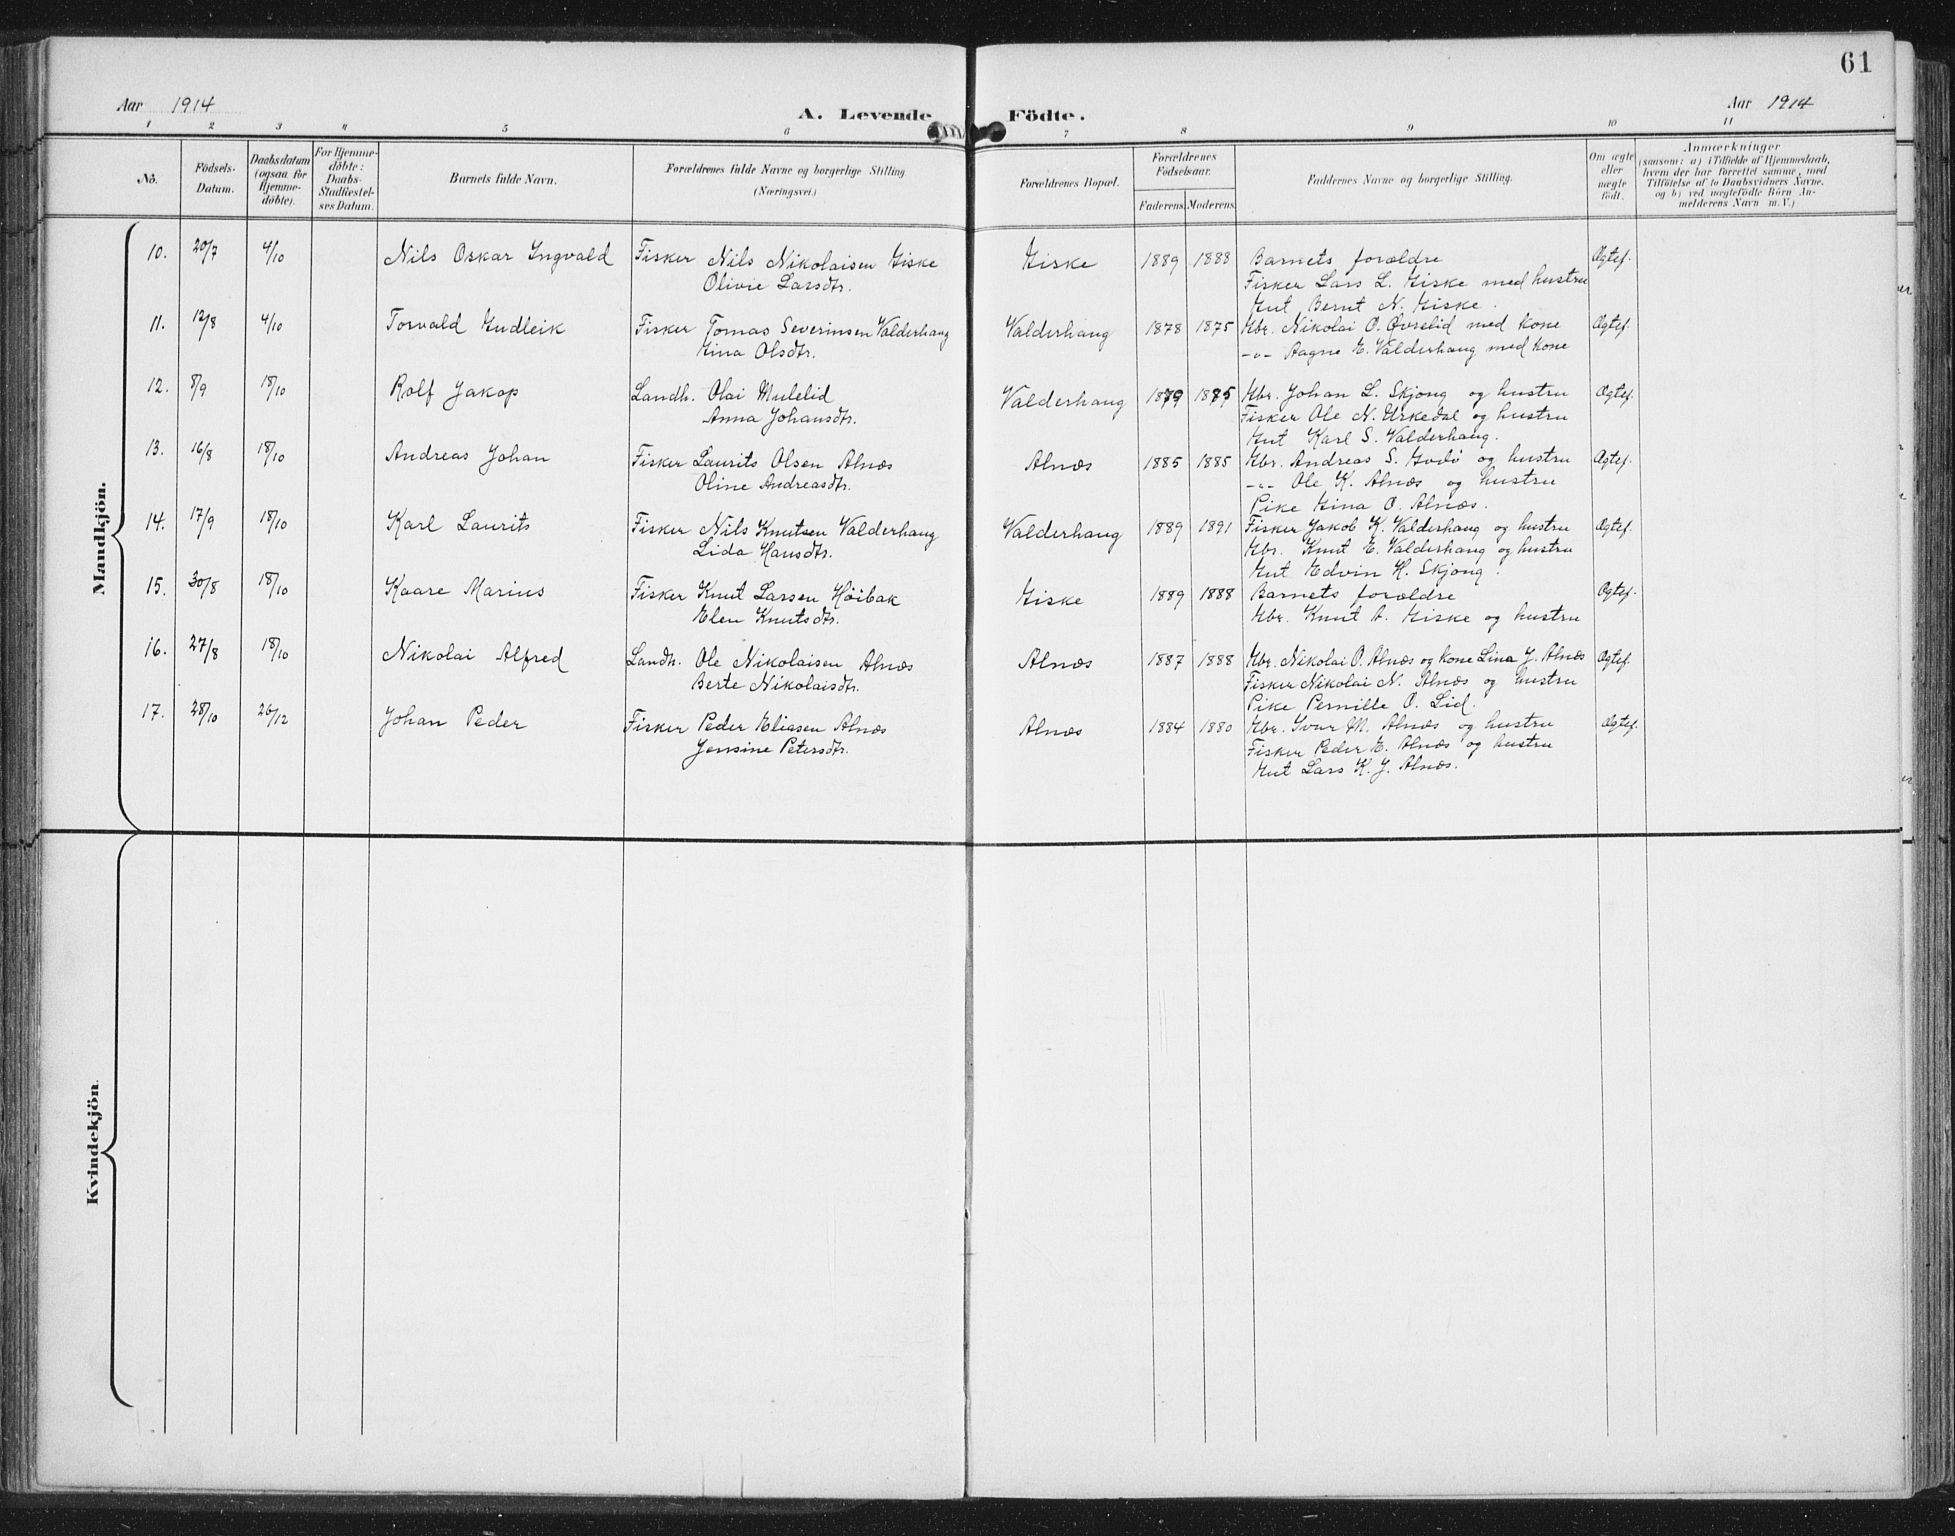 61
Aar 1914
A. Levende Födte.
Aar 1914
1 2 3 4 5 6 7 8 9 10 11
No.
Födsels-Datum.
Daabsdatum (ogsaa for Hjemme-döbte).
For Hjemme-döbte: Daabs-Stadfæstel-ses Datum.
Barnets fulde Navn.
Forældrenes fulde Navne og borgerlige Stilling (Næringsvei.)
Forældrenes Bopæl.
Forældrenes Födselsaar.
Faderens. Moderens.
Faddernes Navne og borgerlige Stilling.
Om ægte eller uægte födt.
Anmærkninger
(saasom: a) i Tilfælde af Hjemmedaab, hvem der har forrettet samme, med Tilföielse af to Daabsvidners Navne, og b) ved uægtefödte Börn An-melderens Navn m. V.)
Mandkjön.
10. 20/7 4/10 Nils Oskar Ingvald Fisker Nils Nikolaisen Giske Giske 1889 1888 Barnets forældre Ægtef.
Olivie Larsdtr. Fisker Lars L. Giske med hustru
Gut Bernt N. Giske.
11. 12/8 4/10 Torvald Gudleik Fisker Tomas Severinsen Valderhaug Valderhaug 1878 1875 Gbr. Nikolai O. Øvrelid med kone Ægtef.
Gina Olsdtr. -"- Aagne E. Valderhaug med kone
12. 8/9 18/10 Rolf Jakop Landh. Olai Mulelid Valderhaug 1879 1875 Gbr. Johan L. Skjong og hustru Ægtef.
Anna Johansdtr. Fisker Ole N. Urkedal og hustru
Gut Karl S. Valderhaug.
13. 16/8 18/10 Andreas Johan Fisker Laurits Olsen Alnæs Alnæs 1885 1885 Gbr. Andreas S. Godö og hustru Ægtef.
Oline Andreasdtr. -"- Ole K. Alnæs og hustru
Pike Gina O. Alnæs.
14. 17/9 18/10 Karl Laurits Fisker Nils Knutsen Valderhaug Valderhaug 1889 1891 Fisker Jakob K. Valderhaug og hustru Ægtef.
Lida Hansdtr. Gbr. Knut E. Valderhaug og hustru
Gut Edvin H. Skjong.
15. 30/8 18/10 Kaare Marius Fisker Knut Larsen Höibak Giske 1889 1888 Barnets forældre Ægtef.
Elen Knutsdtr. Gbr. Knut A. Giske og hustru
16. 27/8 18/10 Nikolai Alfred Landh. Ole Nikolaisen Alnæs Alnæs 1887 1888 Gbr. Nikolai O. Alnæs og kone Lina J. Alnæs Ægtef.
Berte Nikolaisdtr. Fisker Nikolai N. Alnæs og hustru
Pike Pernille O. Lid.
17. 28/10 26/12 Johan Peder Fisker Peder Eliasen Alnæs Alnæs 1884 1880 Gbr. Ivar M. Alnæs og hustru Ægtef.
Jensine Petersdtr. Fisker Peder E. Alnæs og hustru
Gut Lars K. J. Alnæs.
Kvindekjön.